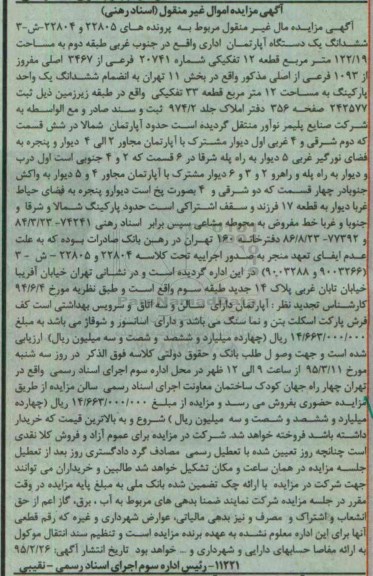 آگهی مزایده اموال غیر منقول (اسناد رهنی)
آگهی مزایده مال غیر منقول مربوط به پرونده های ۲۲۸۰۵ و ۲۲۸۰۴-ش-۳
ششدانگ یک دستگاه آپارتمان اداری واقع در جنوب غربی طبقه دوم به مساحت
۱۲۲/۱۹ متر مربع قطعه ۱۲ تفکیکی شماره ۲۰۷۴۱ فرعی از ۳۴۶۷ اصلی مفروز
از ۱۰۹۳ فرعی از اصلی مذکور واقع در بخش ۱۱ تهران به انضمام ششدانگ یک واحد
پارکینگ به مساحت ۱۲ متر مربع قطعه ۳۳ تفکیکی واقع در طبقه زیرزمین ذیل ثبت
۲۴۲۵۷۷ صفحه ۳۵۶ دفتر املاک جلد ۹۷۴/۲ ثبت و سند صادر و مع الواسطه به
شرکت صنایع پلیمر نوآور منتقل گردیده است حدود آپارتمان شمالا در شش قسمت
که دوم شرقی و ۴ غربی اول دیوار مشترک با آپارتمان مجاور ۳ الی ۴ دیوار و پنجره به
فضای نورگیر غربی ۵ دیوار به راه پله شرقا در ۶ قسمت که ۲ و ۴ جنوبی است اول درب
و دیوار به راه پله و راهرو ۲ و ۳ و ۶ دیوار مشترک با آپارتمان مجاور ۴ و ۵ دیوار به واکش
جنوبا در چهار قسمت که دو شرقی و ۴ بصورت پخ است دیوار و پنجره به فضای حیاط
غربا دیوار به قطعه ۱۷ فرزند و سقف اشتراکی است حدود پارکینگ شمالا و شرقا و
جنوبا و غربا خط مفروض به محوطه مشاعی سپس برابر اسناد رهنی ۷۴۲۴۱-۸۴/۳/۲۳
و ۷۷۳۹۲-۸۶/۸/۲۳ دفترخانه ۱۶۰ تهران در رهن بانک صادرات بوده که به علت
عدم ایفای تعهد منجر به صدور اجراییه تحت کلاسه ۲۲۸۰۴ و ۲۲۸۰۵ - ش - ۳
(۹۰۰۳۲۶۶ و ۹۰۰۳۲۸۸) در این اداره گردیده است و در نشانی تهران خیابان آفریقا
خیابان تابان غربی پلاک ۱۴ جدید طبقه سوم واقع است و طبق نظریه مورخ ۹۴/۶/۴
کارشناس تجدید نظر : آپارتمان دارای سالن و سه اتاق و سرویس بهداشتی است کف
فرش پارکت اسکلت بتن و نما سنگ می باشد و دارای آسانسور و شوفاژ می باشد به مبلغ
۱۴/۶۶۳/۰۰۰/۰۰۰ ریال (چهارده میلیارد و ششصد و شصت و سه میلیون ریال) ارزیابی
شده است و جهت وصول طلب بانک و حقوق دولتی کلاسه فوق الذکر در روز سه شنبه
مورخ ۹۵/۳/۱۱ از ساعت ۹ الی ۱۲ ظهر در محل اداره سوم اجرای اسناد رسمی واقع در
تهران چهار راه جهان کودک ساختمان معاونت اجرای اسناد رسمی سالن مزایده از طریق
مزایده حضوری بفروش می رسد و مزایده از مبلغ ۱۴/۶۶۳/۰۰۰/۰۰۰ ریال (چهارده
میلیارد و ششصد و شصت و سه میلیون ریال ) شروع و به بالاترین قیمت که خریدار
داشته باشد فروخته خواهد شد. شرکت در مزایده برای عموم آزاد و فروش کلا نقدی
است چنانچه روز تعیین شده با تعطیل رسمی مصادف گردد دادگستری روز بعد از تعطیل
جلسه مزایده در همان ساعت و مکان تشکیل خواهد شد طالبین و خریداران می توانند
جهت شرکت در مزایده با ارائه چک تضمین شده بانک ملی به مبلغ پایه مزایده در وقت
مقرر در جلسه مزایده شرکت نمایند ضمنا بدهی های مربوط به آب ، برق، گاز اعم از حق
انشعاب و اشتراک و مصرف و نیز بدهی مالیاتی، عوارض شهرداری و غیره که رقم قطعی
آنها برای این اداره معلوم نشده به عهده برنده مزایده است و تنظیم سند انتقال موکول
به ارائه مفاصا حسابهای دارایی و شهرداری و ... خواهد بود تاریخ انتشار آگهی: ۹۵/۲/۲۶
۱۱۲۲۱- رئیس اداره سوم اجرای اسناد رسمی - نقیبی